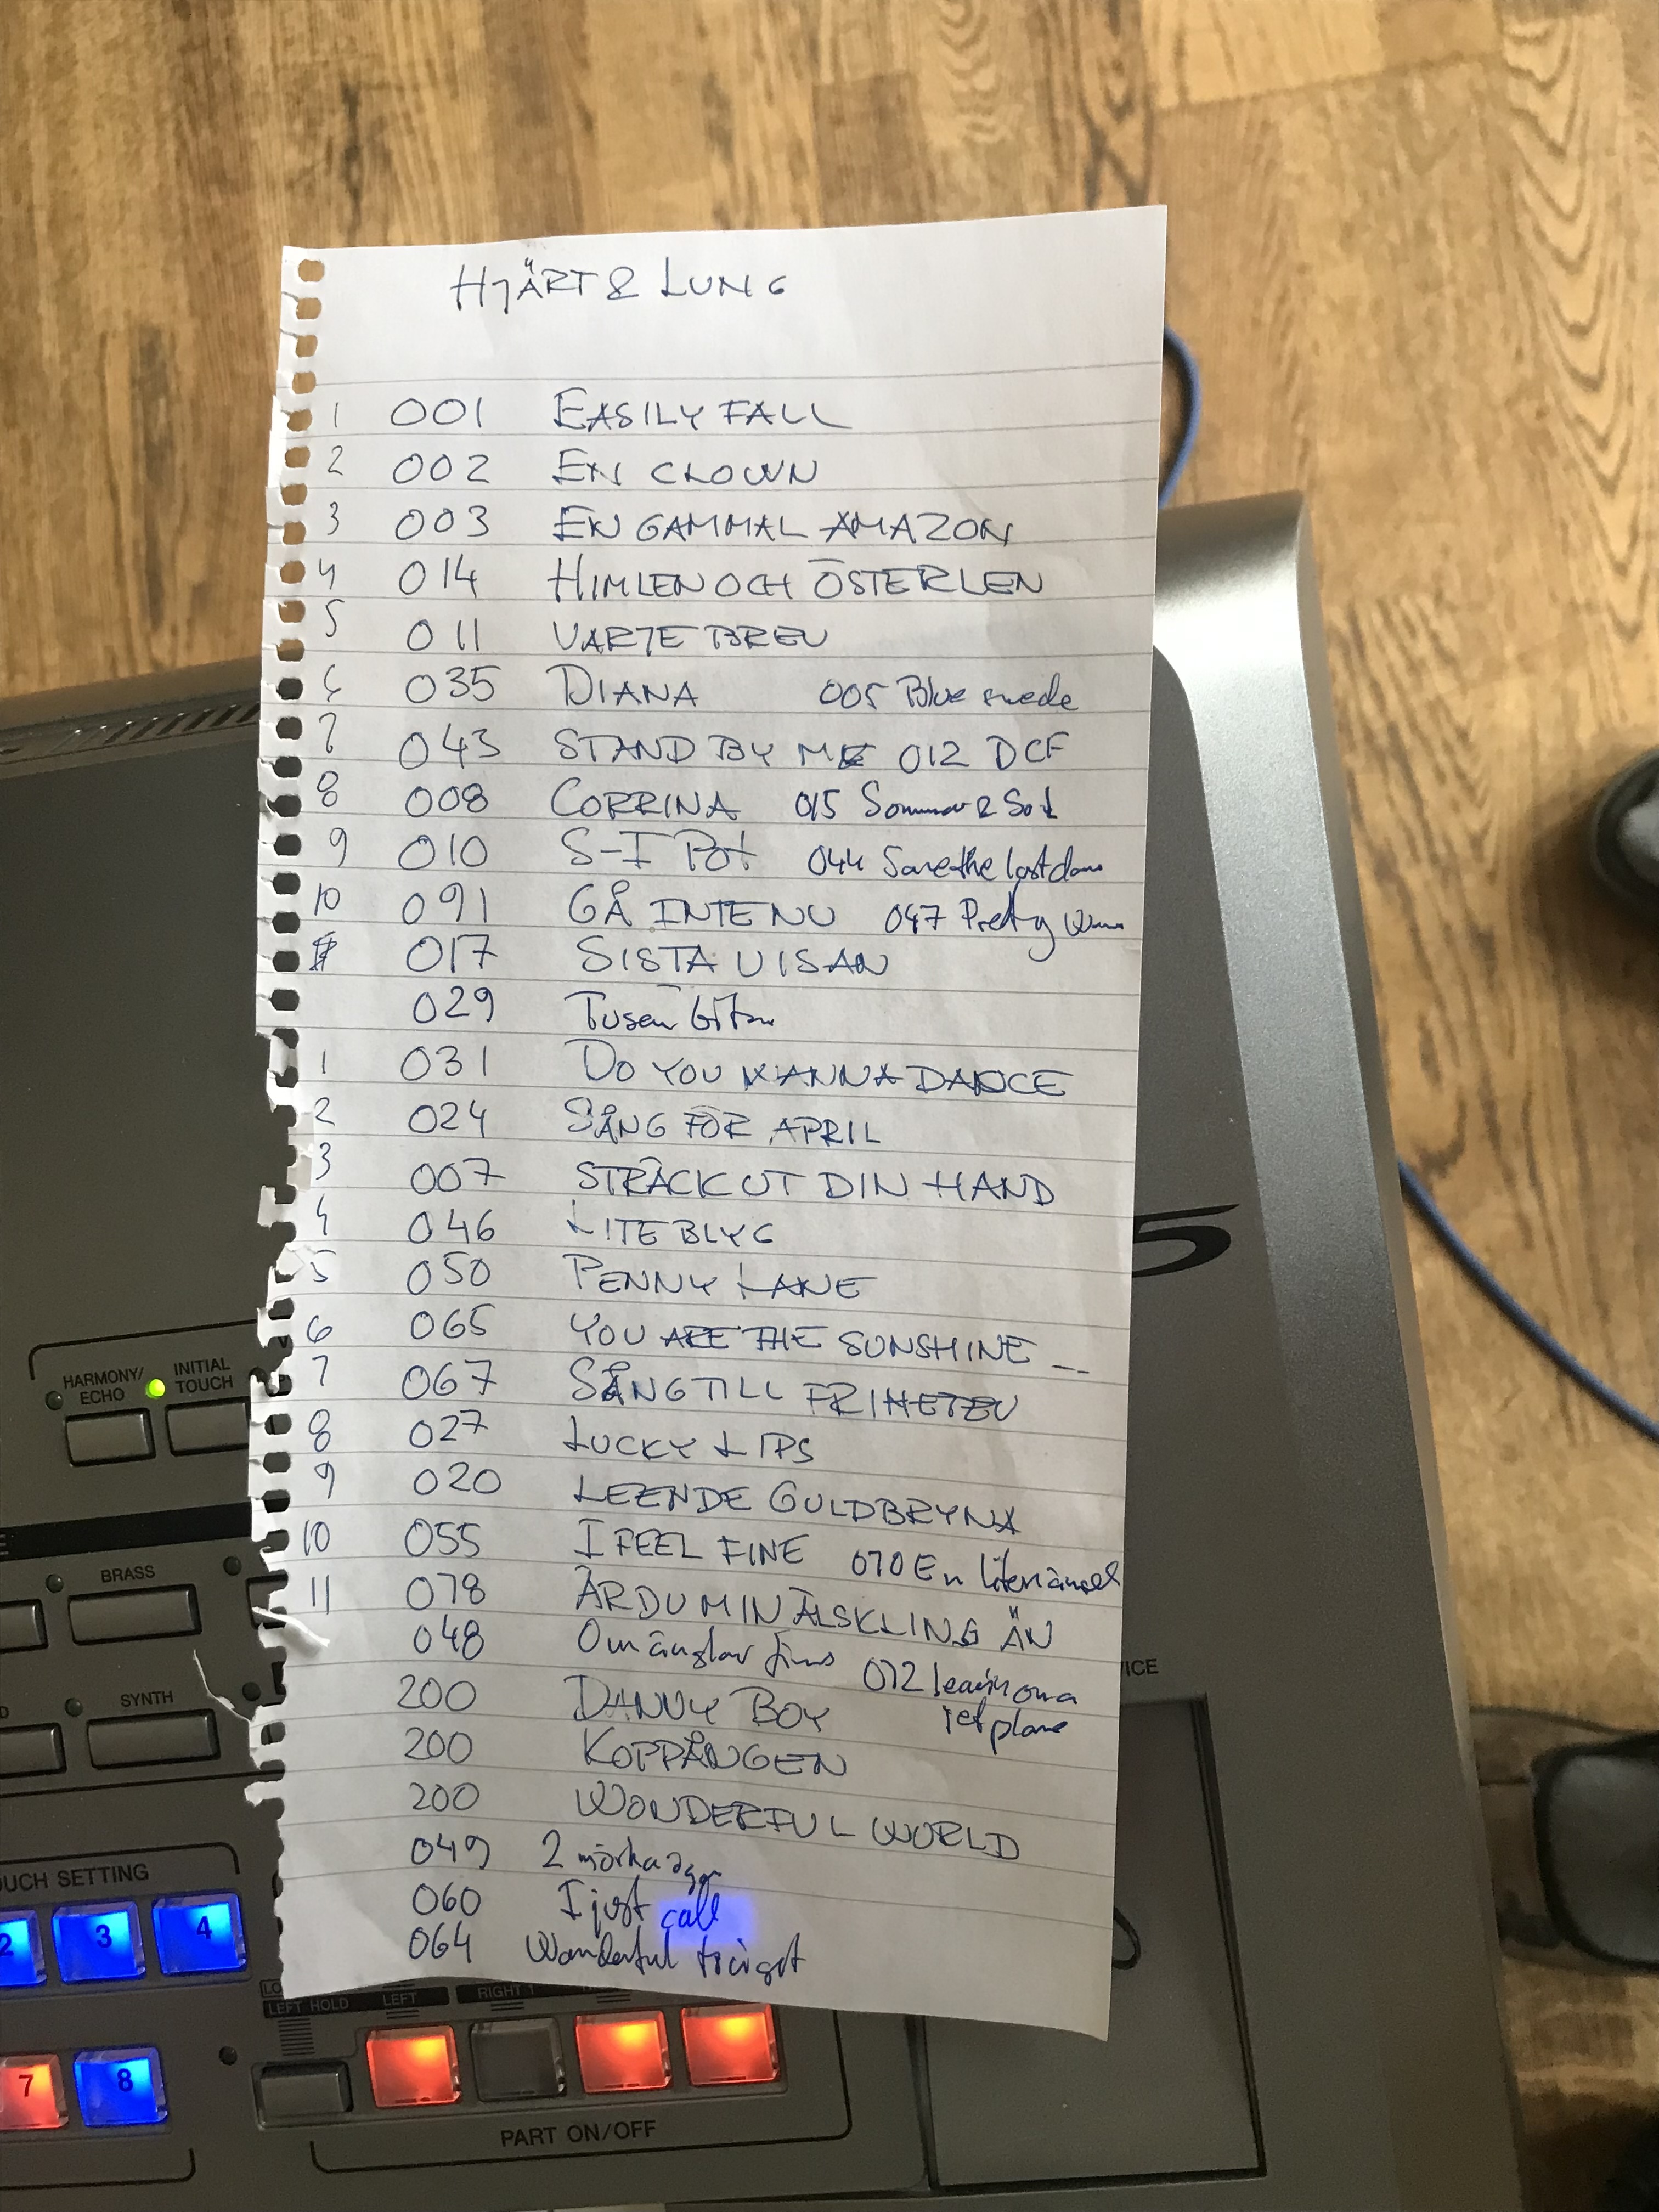 HJÄRT & LUNG
1 001 EASILY FALL
2 002 EN CLOWN
3 003 EN GAMMAL AMAZON
4 014 HIMLEN OCH ÖSTERLEN
5 011 VARJE BREV
6 035 DIANA 005 Blue suede
7 043 STAND BY ME 012 DCF
8 008 CORRINA 015 Sommar & Sol
9 010 S-I Pot 044 Save the last dans
10 091 GÅ INTE NU 047 Pretty
017 SISTA VISAN
029 Tusen
1 031 DO YOU WANNA DANCE
2 024 SÅNG FÖR APRIL
3 007 STRÄCK UT DIN HAND
4 046 LITE BLYG
5 050 PENNY LANE
6 065 YOU ARE THE SUNSHINE --
7 067 SÅNG TILL FRIHETEN
8 027 LUCKY LIPS
9 020 LEENDE GULDBRYNA
10 055 I FEEL FINE 070 En liten
11 078 ÄR DU MIN ÄLSKLING ÄN
048 Om änglar finns 072 leavin on a
jet plane
200 DANNY BOY
200 KOPPÅNGEN
200 WONDERFUL WORLD
049 2 mörka
060 I just call
064 Wonderful
HARMONY/
ECHO
INITIAL
TOUCH
5
BRASS
SYNTH
UCH SETTING
2 3 4
LEFT HOLD LEFT RIGHT 1
7 8
PART ON/OFF